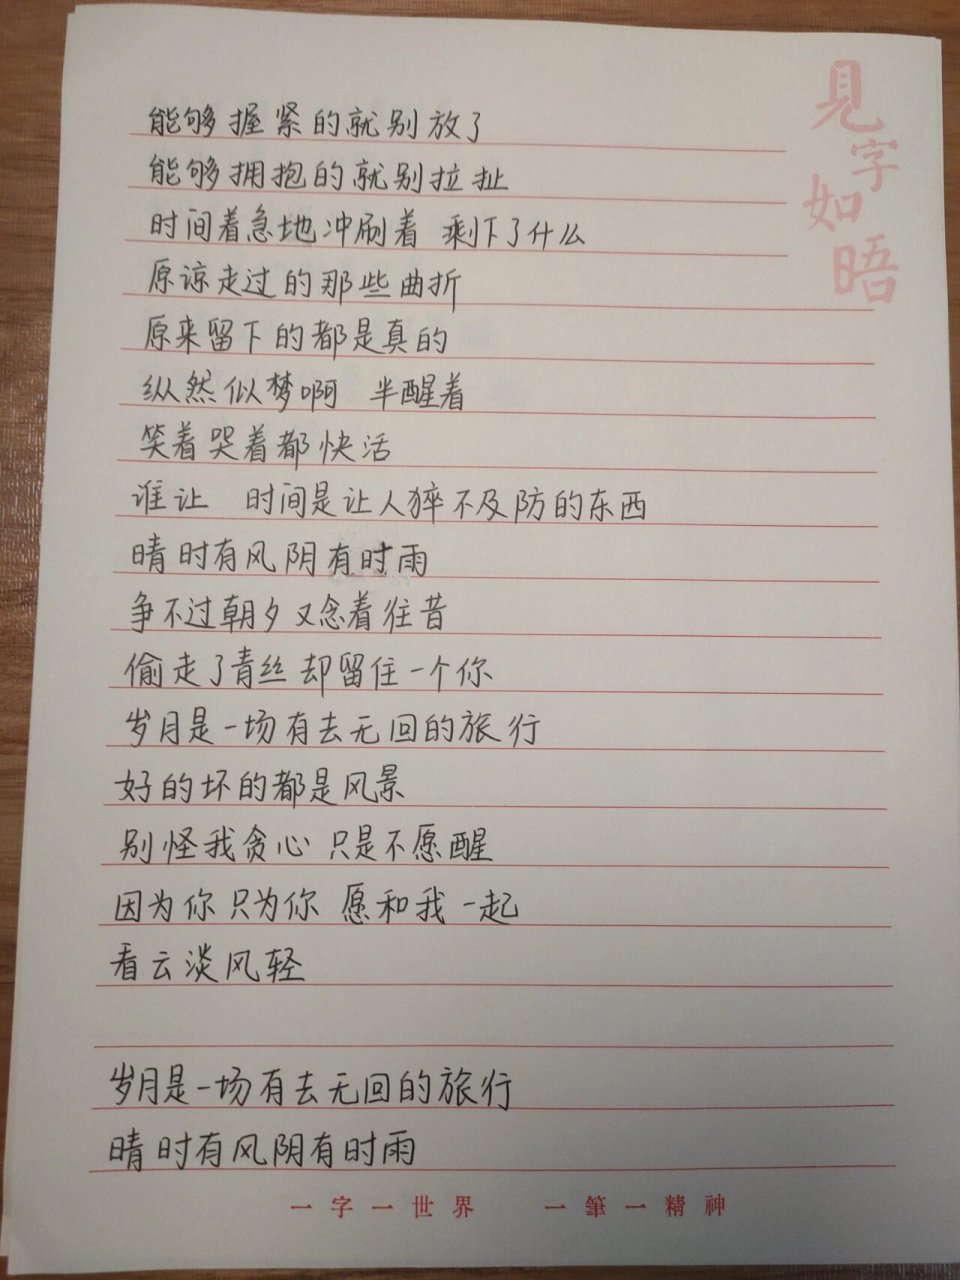 見字如晤
能够握紧的就别放了
能够拥抱的就别拉扯
时间着急地冲刷着 剩下了什么
原谅走过的那些曲折
原来留下的都是真的
纵然似梦啊 半醒着
笑着哭着都快活
谁让 时间是让人猝不及防的东西
晴时有风阴有时雨
争不过朝夕又念着往昔
偷走了青丝却留住一个你
岁月是一场有去无回的旅行
好的坏的都是风景
别怪我贪心 只是不愿醒
因为你只为你 愿和我一起
看云淡风轻
岁月是一场有去无回的旅行
晴时有风阴有时雨
一字一世界 一筆一精神